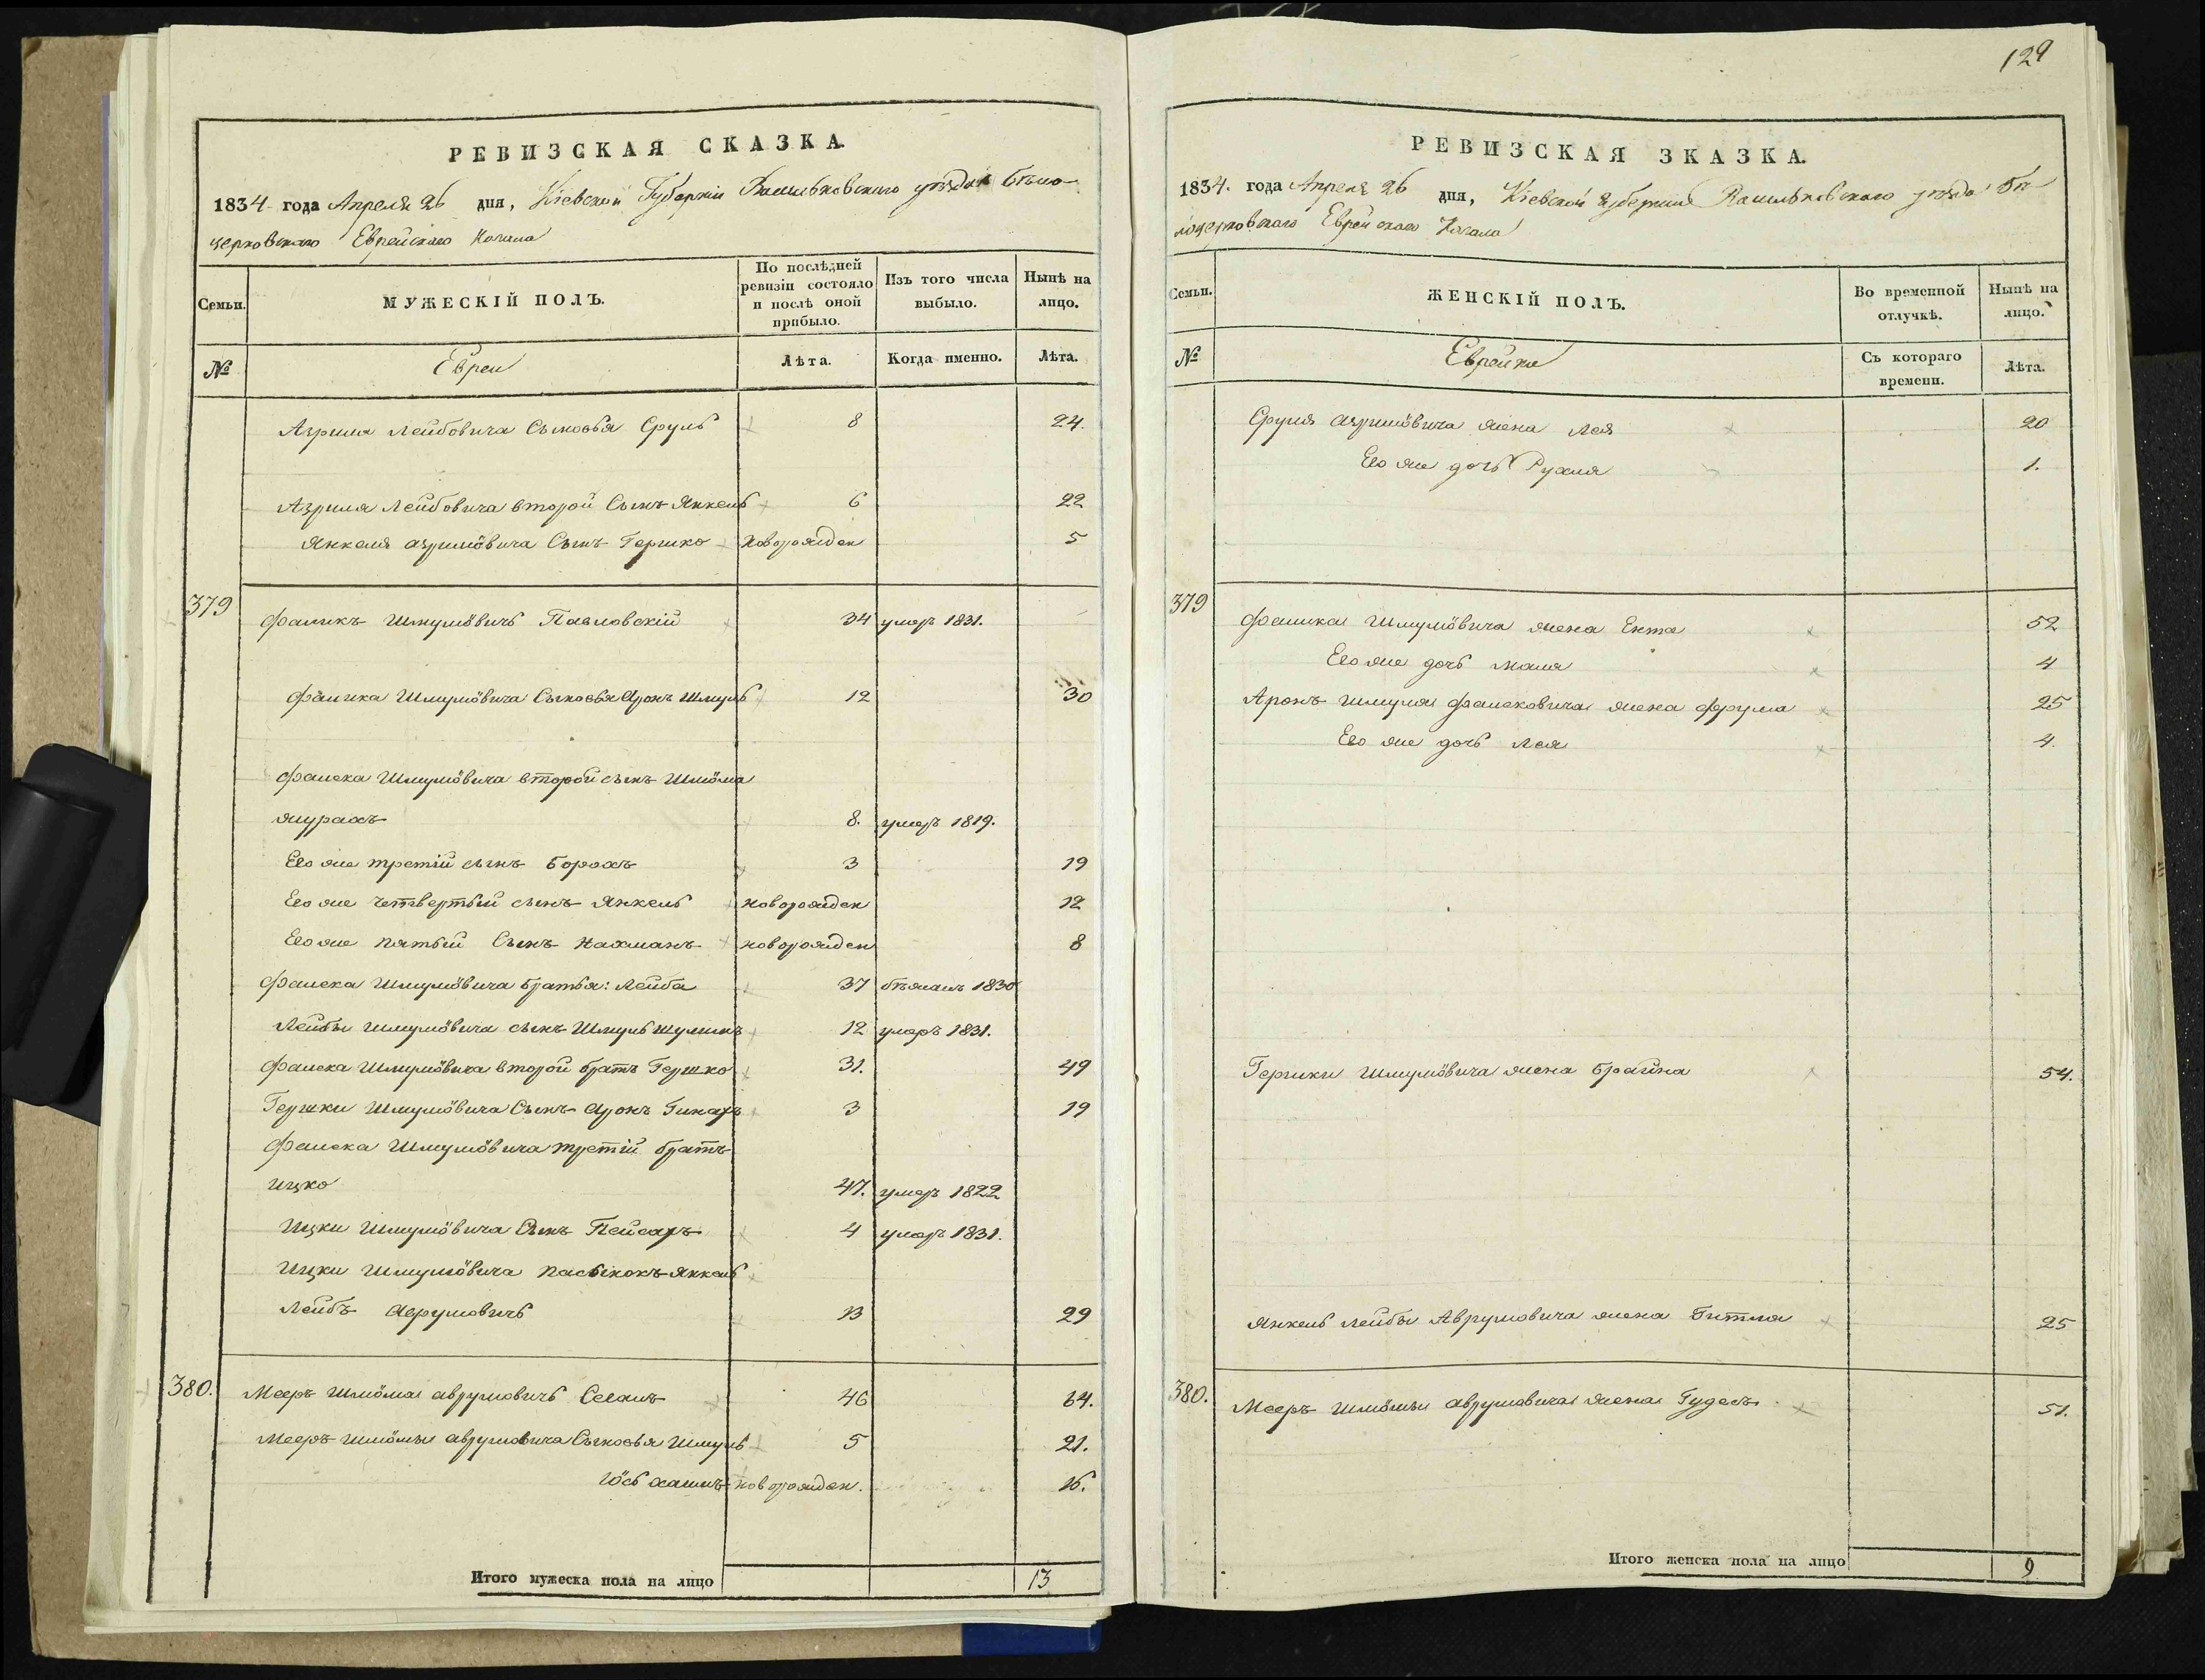 РЕВИЗСКАЯ СКАЗКА.
1834 года Апреля 26 дня, Кіевской Губерніи Васильковскаго уѣзда Бѣло-
церковскаго Еврейскаго Кагала
Семьи.
МУЖЕСКІЙ ПОЛЪ.
По послѣдней ревизіи состояло и послѣ оной прибыло.
Изъ того числа выбыло.
Нынѣ на лицо.
№
Евреи
Лѣта.
Когда именно.
Лѣта.
Азриля Лейбовича Сыновья Сруль 8 24.
Азриля Лейбовича второй Сынъ Янкель 6 22
Янкеля Азрилёвича Сынъ Гершко Новорожден 5
379 Фаликъ Шмулёвичь Павловскій 34 умеръ 1831.
Фалика Шмулёвича Сыновья Аронъ Шмуль 12 30
Фалека Шмулёвича второй сынъ Шлёма
Журахъ 8. умеръ 1819.
Его же третій сынъ Борохъ 3 19
Его же четвертый сынъ Янкель новорожден 12
Его же пятый Сынъ Нахманъ новорожден 8
Фалека Шмулёвича братья: Лейба 37 бѣжалъ 1830
Лейбы Шмулёвича сынъ Шмуль 12 умеръ 1831.
Фалека Шмулёвича второй братъ Гершко 31. 49
Гершки Шмулёвича Сынъ Аронъ 3 19
Фалека Шмулёвича третій братъ
Ицко 47. умеръ 1822
Ицки Шмулёвича Сынъ Пейсахъ 4 умеръ 1831.
Ицки Шмулёвича пасынокъ Янкель
Лейбъ Аврумовичь 13 29
380. Мееръ Шлёма Аврумовичь 46 64.
Мееръ Шлёмы Аврумовича Сыновья Шмуль 5 21.
Іось Хаимъ новорожден. 16.
Итого мужеска пола на лицо 13
129
РЕВИЗСКАЯ ЗКАЗКА.
1834. года Апреля 26 дня, Кіевской Губерніи Васильковскаго уѣзда Бѣ-
лоцерковскаго Еврейскаго Кагала
Семьи.
ЖЕНСКІЙ ПОЛЪ.
Во временной отлучкѣ.
Нынѣ на лицо.
№
Еврейки
Съ котораго времени.
Лѣта.
Сруля Азрилёвича жена Лея 20
Его же дочь Рухля 1.
379 Фалика Шмулёвича жена Ента 52
Его же дочь Маля 4
Аронъ Шмуля Фалековича жена Фрума 25
Его же дочь Лея 4.
Гершки Шмулёвича жена Брайна 54.
Янкель Лейбы Аврумовича жена Гитля 25
380. Мееръ Шлёмы Аврумовича жена Гудесъ 51.
Итого женска пола на лицо 9